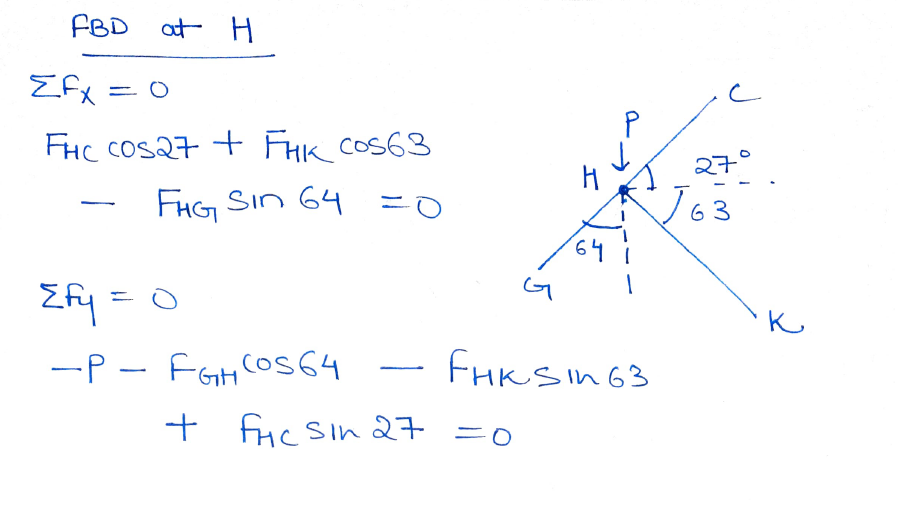 FBD at H
ΣFx = 0
FHC cos27 + FHK cos63
- FHG sin 64 = 0
ΣFy = 0
-P - FGH cos64 - FHK sin 63
+ FHC sin 27 = 0
C
P
27°
H
63
64
G
K